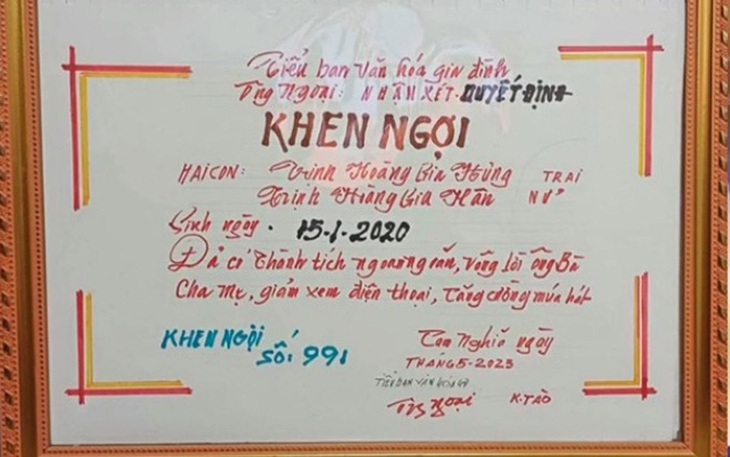 Tiểu ban Văn hóa gia đình
Ông Ngoại: NHẬN XÉT - QUYẾT ĐỊNH
KHEN NGỢI
HAI CON: Trịnh Hoàng Gia Hưng TRAI
Trịnh Hoàng Gia Hân NỮ
Sinh ngày. 15-1-2020
Đã có thành tích ngoan ngoãn, vâng lời ông Bà
Cha Mẹ, giảm xem điện thoại, tăng cường múa hát
KHEN NGỢI
SỐ: 991
Tam Nghĩa ngày
THÁNG 5-2023
TIỂU BAN VĂN HÓA GĐ
Ông Ngoại K.TÀO